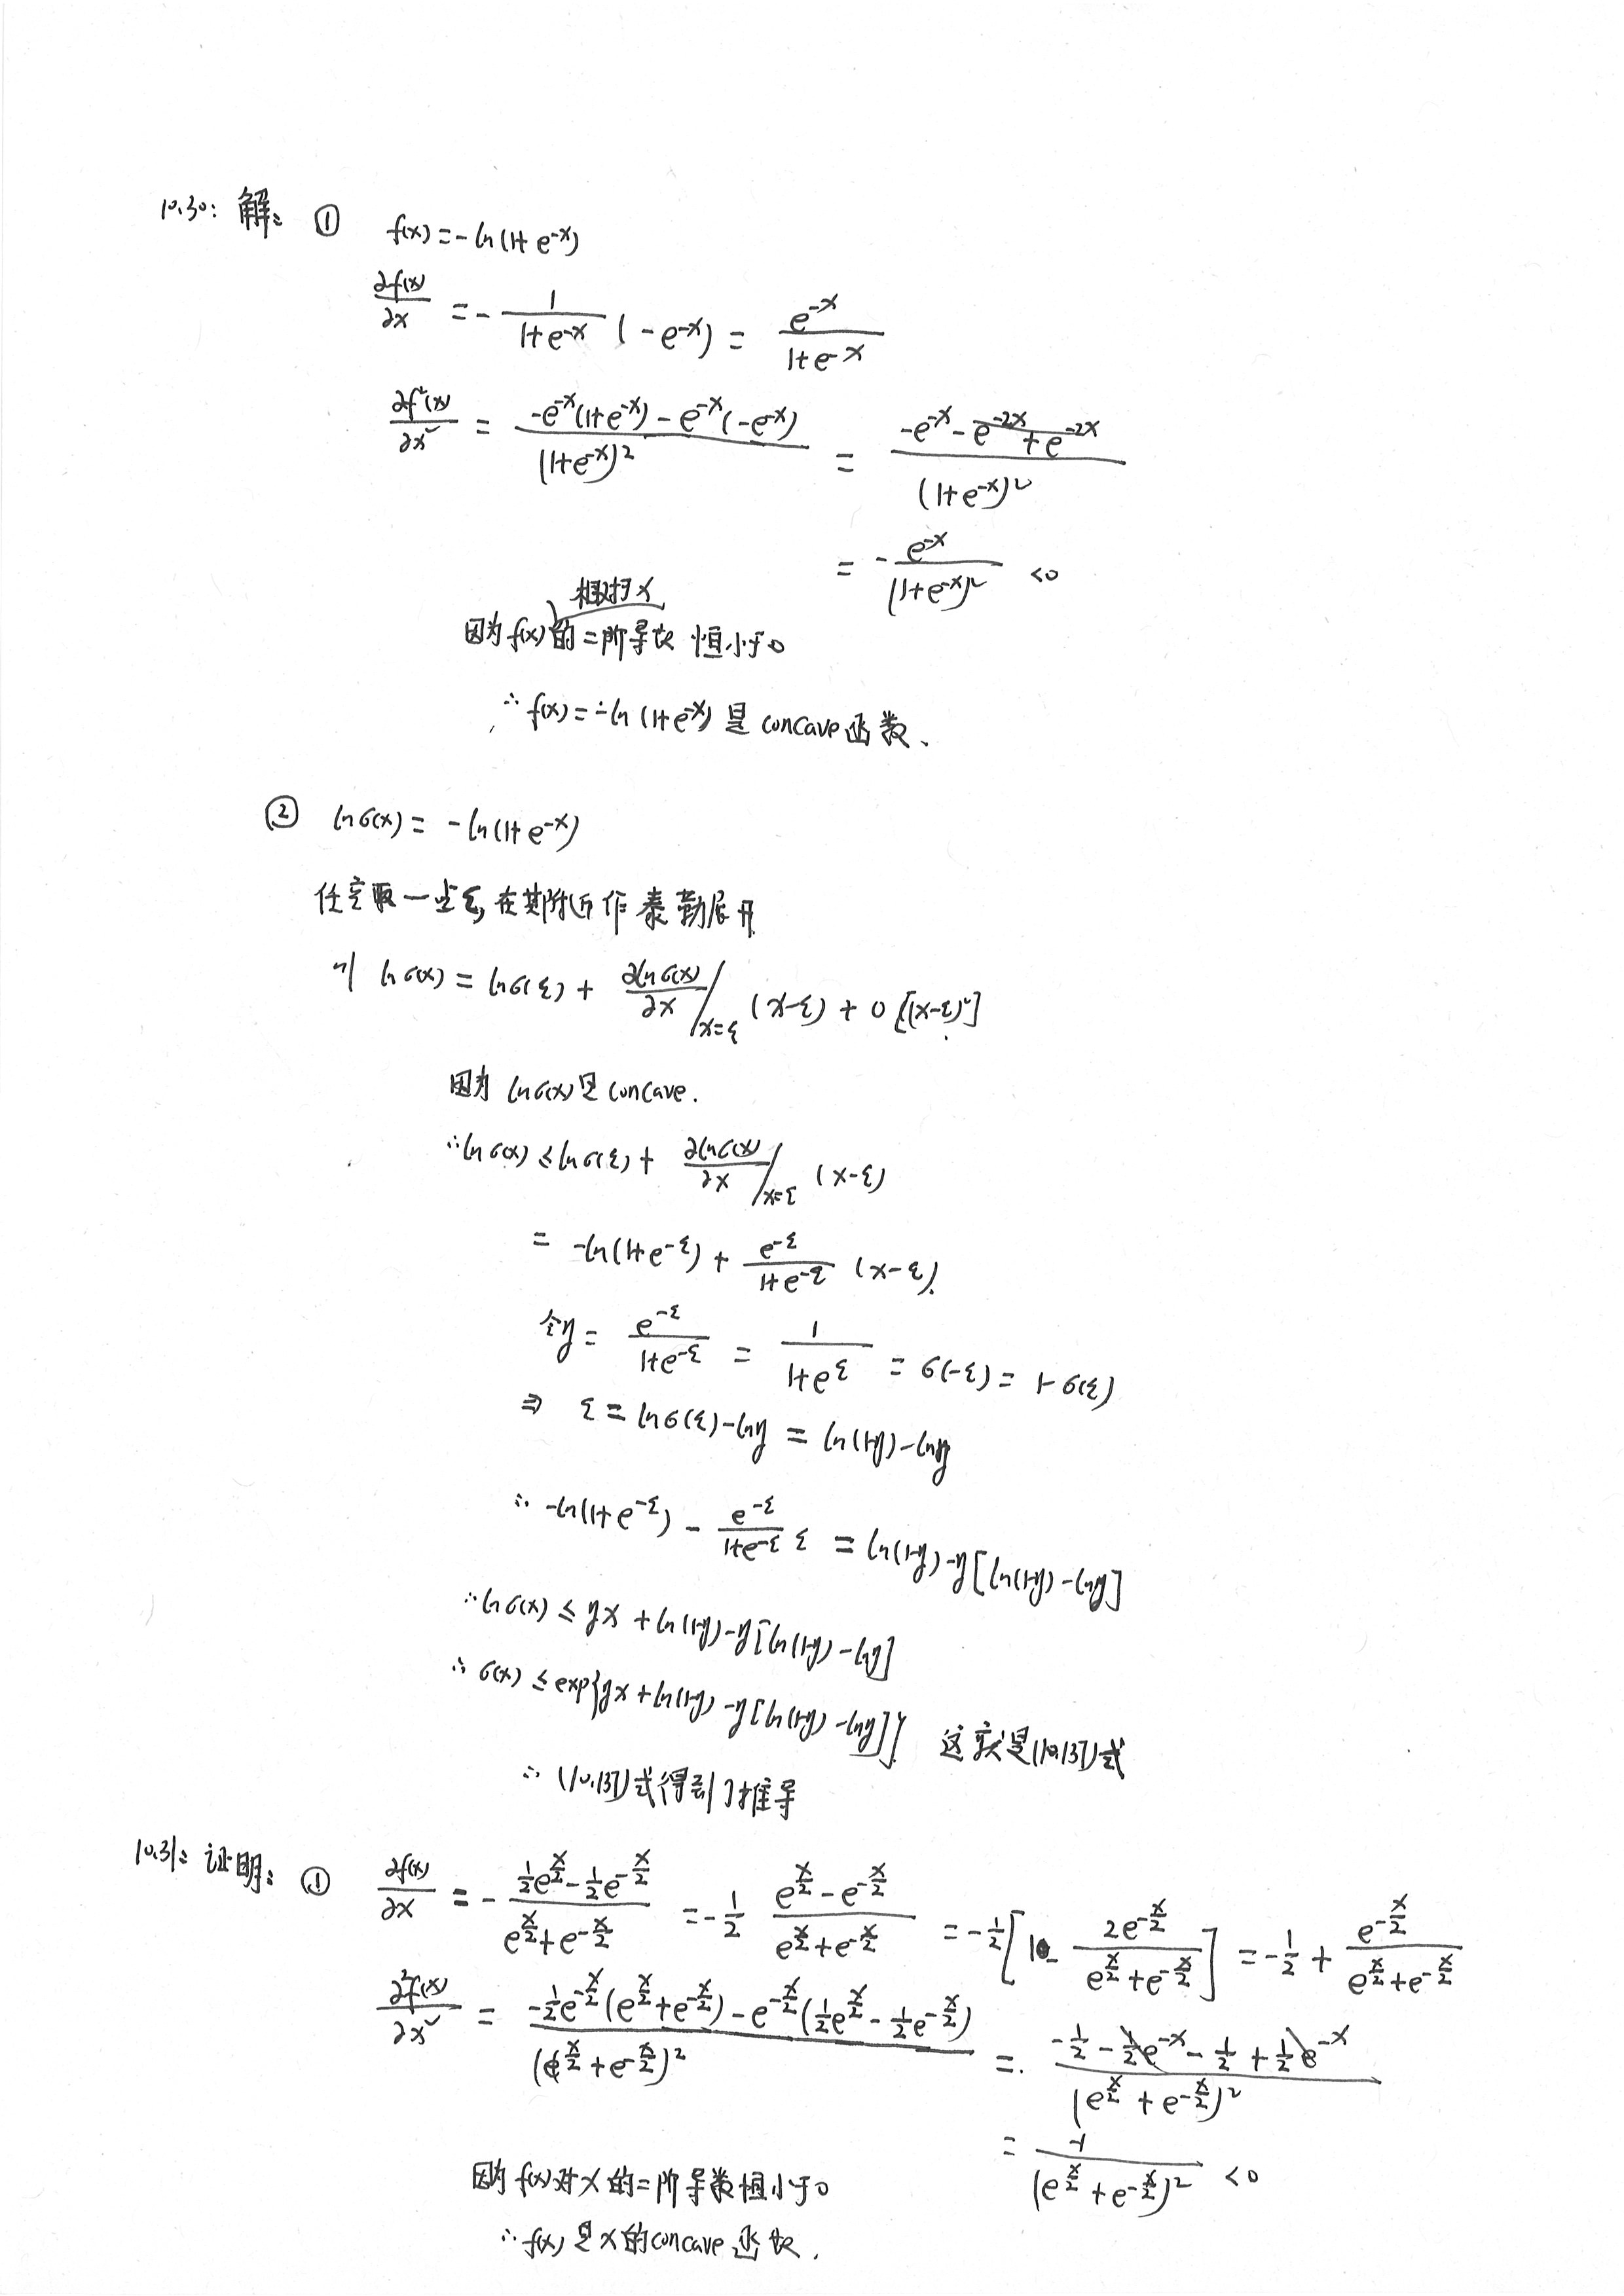 10.30: 解: ① f(x) = -ln(1+e^{-x})
∂f(x)/∂x = - 1/(1+e^{-x}) (-e^{-x}) = e^{-x}/(1+e^{-x})
∂f²(x)/∂x² = [-e^{-x}(1+e^{-x}) - e^{-x}(-e^{-x})]/(1+e^{-x})² = [-e^{-x} - e^{-2x} + e^{-2x}]/(1+e^{-x})²
= - e^{-x}/(1+e^{-x})² <0
因为f(x)相对于x的二阶导数恒小于0
∴ f(x) = -ln(1+e^{-x}) 是 concave 函数、
② lnσ(x) = -ln(1+e^{-x})
任意取一点ξ, 在其附近作泰勒展开
则 lnσ(x) = lnσ(ξ) + ∂lnσ(x)/∂x /_{x=ξ} (x-ξ) + o[(x-ξ)²]
因为 lnσ(x)是 concave.
∴ lnσ(x) ≤ lnσ(ξ) + ∂lnσ(x)/∂x /_{x=ξ} (x-ξ)
= -ln(1+e^{-ξ}) + e^{-ξ}/(1+e^{-ξ}) (x-ξ).
令η = e^{-ξ}/(1+e^{-ξ}) = 1/(1+e^{ξ}) = σ(-ξ) = 1-σ(ξ)
⇒ ξ = lnσ(ξ) - lnη = ln(1-η) - lnη
∴ -ln(1+e^{-ξ}) - e^{-ξ}/(1+e^{-ξ}) ξ = ln(1-η) - η[ln(1-η) - lnη]
∴ lnσ(x) ≤ ηx + ln(1-η) - η[ln(1-η) - lnη]
∴ σ(x) ≤ exp{ηx + ln(1-η) - η[ln(1-η) - lnη]} 这就是(10.137)式
∴ (10.137)式得到了推导
10.31: 证明: ① ∂f(x)/∂x = - [½e^{x/2} - ½e^{-x/2}]/[e^{x/2} + e^{-x/2}] = -½ [e^{x/2} - e^{-x/2}]/[e^{x/2} + e^{-x/2}] = -½[1 - 2e^{-x/2}/(e^{x/2} + e^{-x/2})] = -½ + e^{-x/2}/(e^{x/2} + e^{-x/2})
∂²f(x)/∂x² = [-½e^{-x/2}(e^{x/2} + e^{-x/2}) - e^{-x/2}(½e^{x/2} - ½e^{-x/2})]/(e^{x/2} + e^{-x/2})² = [-½ - ½e^{-x} - ½ + ½e^{-x}]/(e^{x/2} + e^{-x/2})²
= -1/(e^{x/2} + e^{-x/2})² <0
因为 f(x)对x的二阶导数恒小于0
∴ f(x)是x的concave函数.